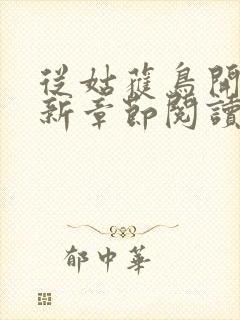 從姑蒦鳥開
新章節閱讀
郁中華